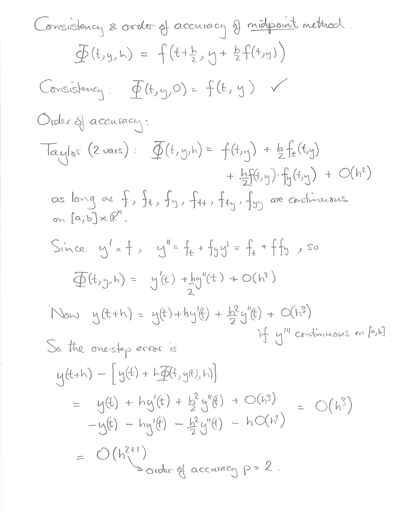 Consistency & order of accuracy of midpoint method.
Φ(t,y,h) = f(t+h/2, y + h/2 f(t,y))
Consistency: Φ(t,y,0) = f(t,y) ✓
Order of accuracy:
Taylor (2 vars): Φ(t,y,h) = f(t,y) + h/2 f_t(t,y)
+ h/2 f(t,y)·f_y(t,y) + O(h²)
as long as f, f_t, f_y, f_tt, f_ty, f_yy are continuous
on [a,b]×ℝⁿ.
Since y' = f, y'' = f_t + f_y y' = f_t + f f_y, so
Φ(t,y,h) = y'(t) + h/2 y''(t) + O(h²)
Now y(t+h) = y(t) + hy'(t) + h²/2 y''(t) + O(h³)
if y''' continuous on [a,b]
So the one-step error is
y(t+h) - [y(t) + hΦ(t,y(t),h)]
= y(t) + hy'(t) + h²/2 y''(t) + O(h³)
-y(t) - hy'(t) - h²/2 y''(t) - hO(h²) = O(h³)
= O(h²⁺¹)
order of accuracy p = 2.